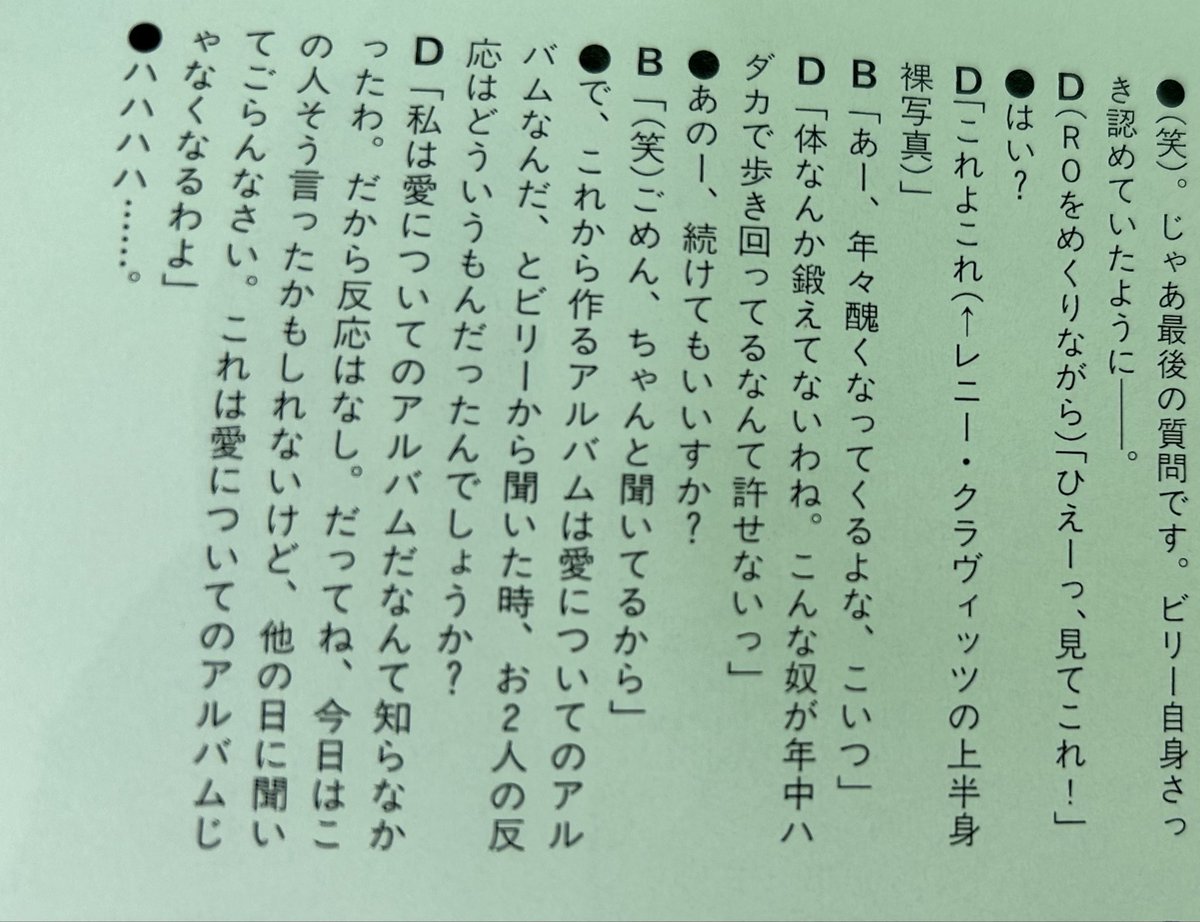 ●(笑)。じゃあ最後の質問です。ビリー自身さっ
き認めていたように――。
D(ROをめくりながら)「ひえーっ、見てこれ!」
●はい?
D「これよこれ(←レニー・クラヴィッツの上半身
裸写真)」
B「あー、年々醜くなってくるよな、こいつ」
D「体なんか鍛えてないわね。こんな奴が年中ハ
ダカで歩き回ってるなんて許せないっ」
●あのー、続けてもいいすか?
B「(笑)ごめん、ちゃんと聞いてるから」
●で、これから作るアルバムは愛についてのアル
バムなんだ、とビリーから聞いた時、お2人の反
応はどういうもんだったんでしょうか?
D「私は愛についてのアルバムだなんて知らなか
ったわ。だから反応はなし。だってね、今日はこ
の人そう言ったかもしれないけど、他の日に聞い
てごらんなさい。これは愛についてのアルバムじ
ゃなくなるわよ」
●ハハハハ……。